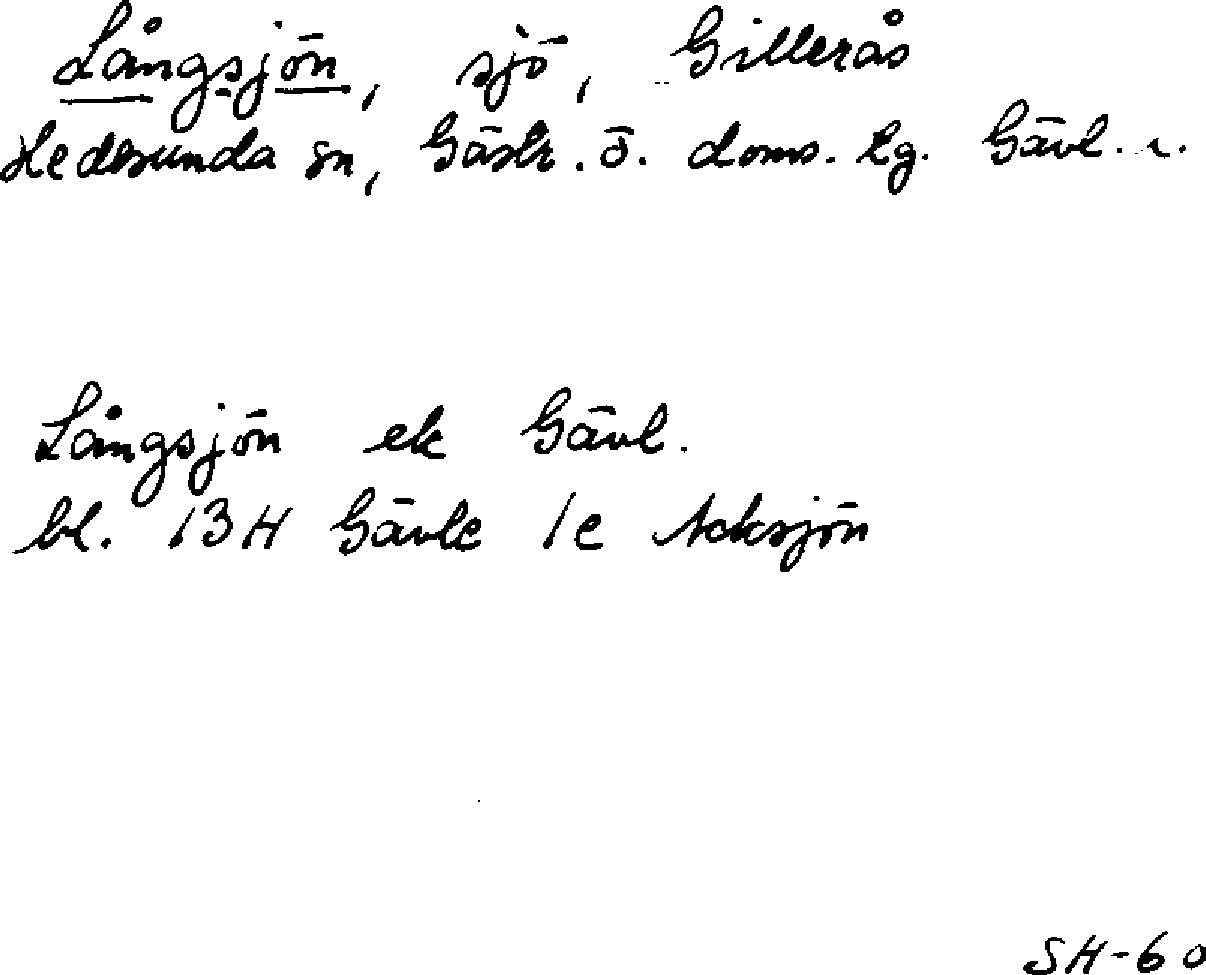 Långsjön, sjö, Gillerås
Hedesunda sn, Gästr. ö. doms. lg. Gävl. l.
Långsjön ek Gävl.
bl. 13H Gävle 1e Acksjön
SH-60